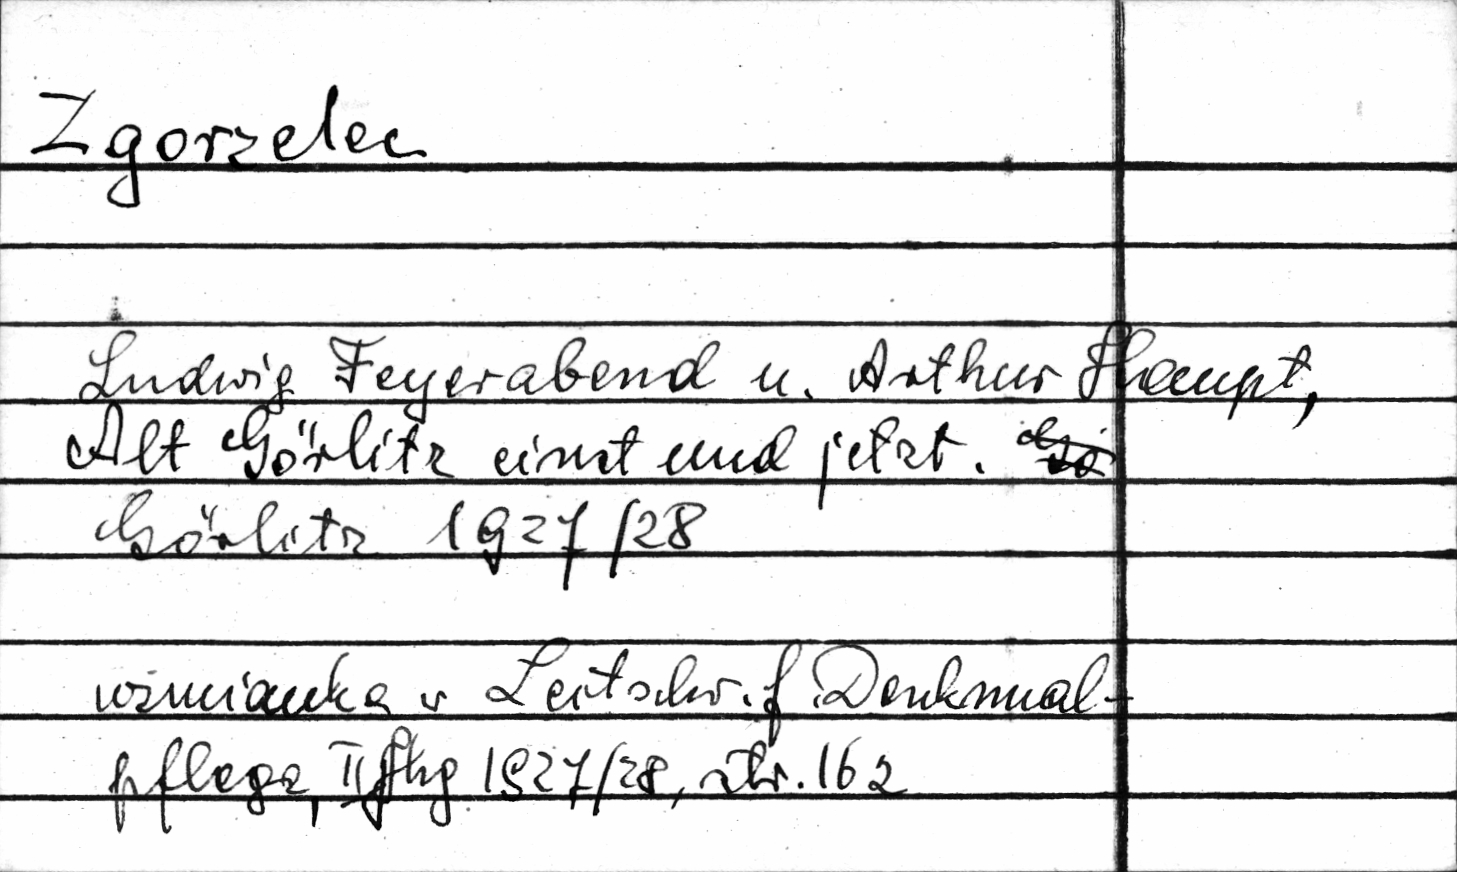 Zgorzelec
Ludwig Feyerabend u. Arthur Haupt,
Alt Görlitz einst und jetzt. Gö
Görlitz 1927/28
wzmianka w Zeitschr. f Denkmal-
pflege, II Jhg 1927/28, str. 162